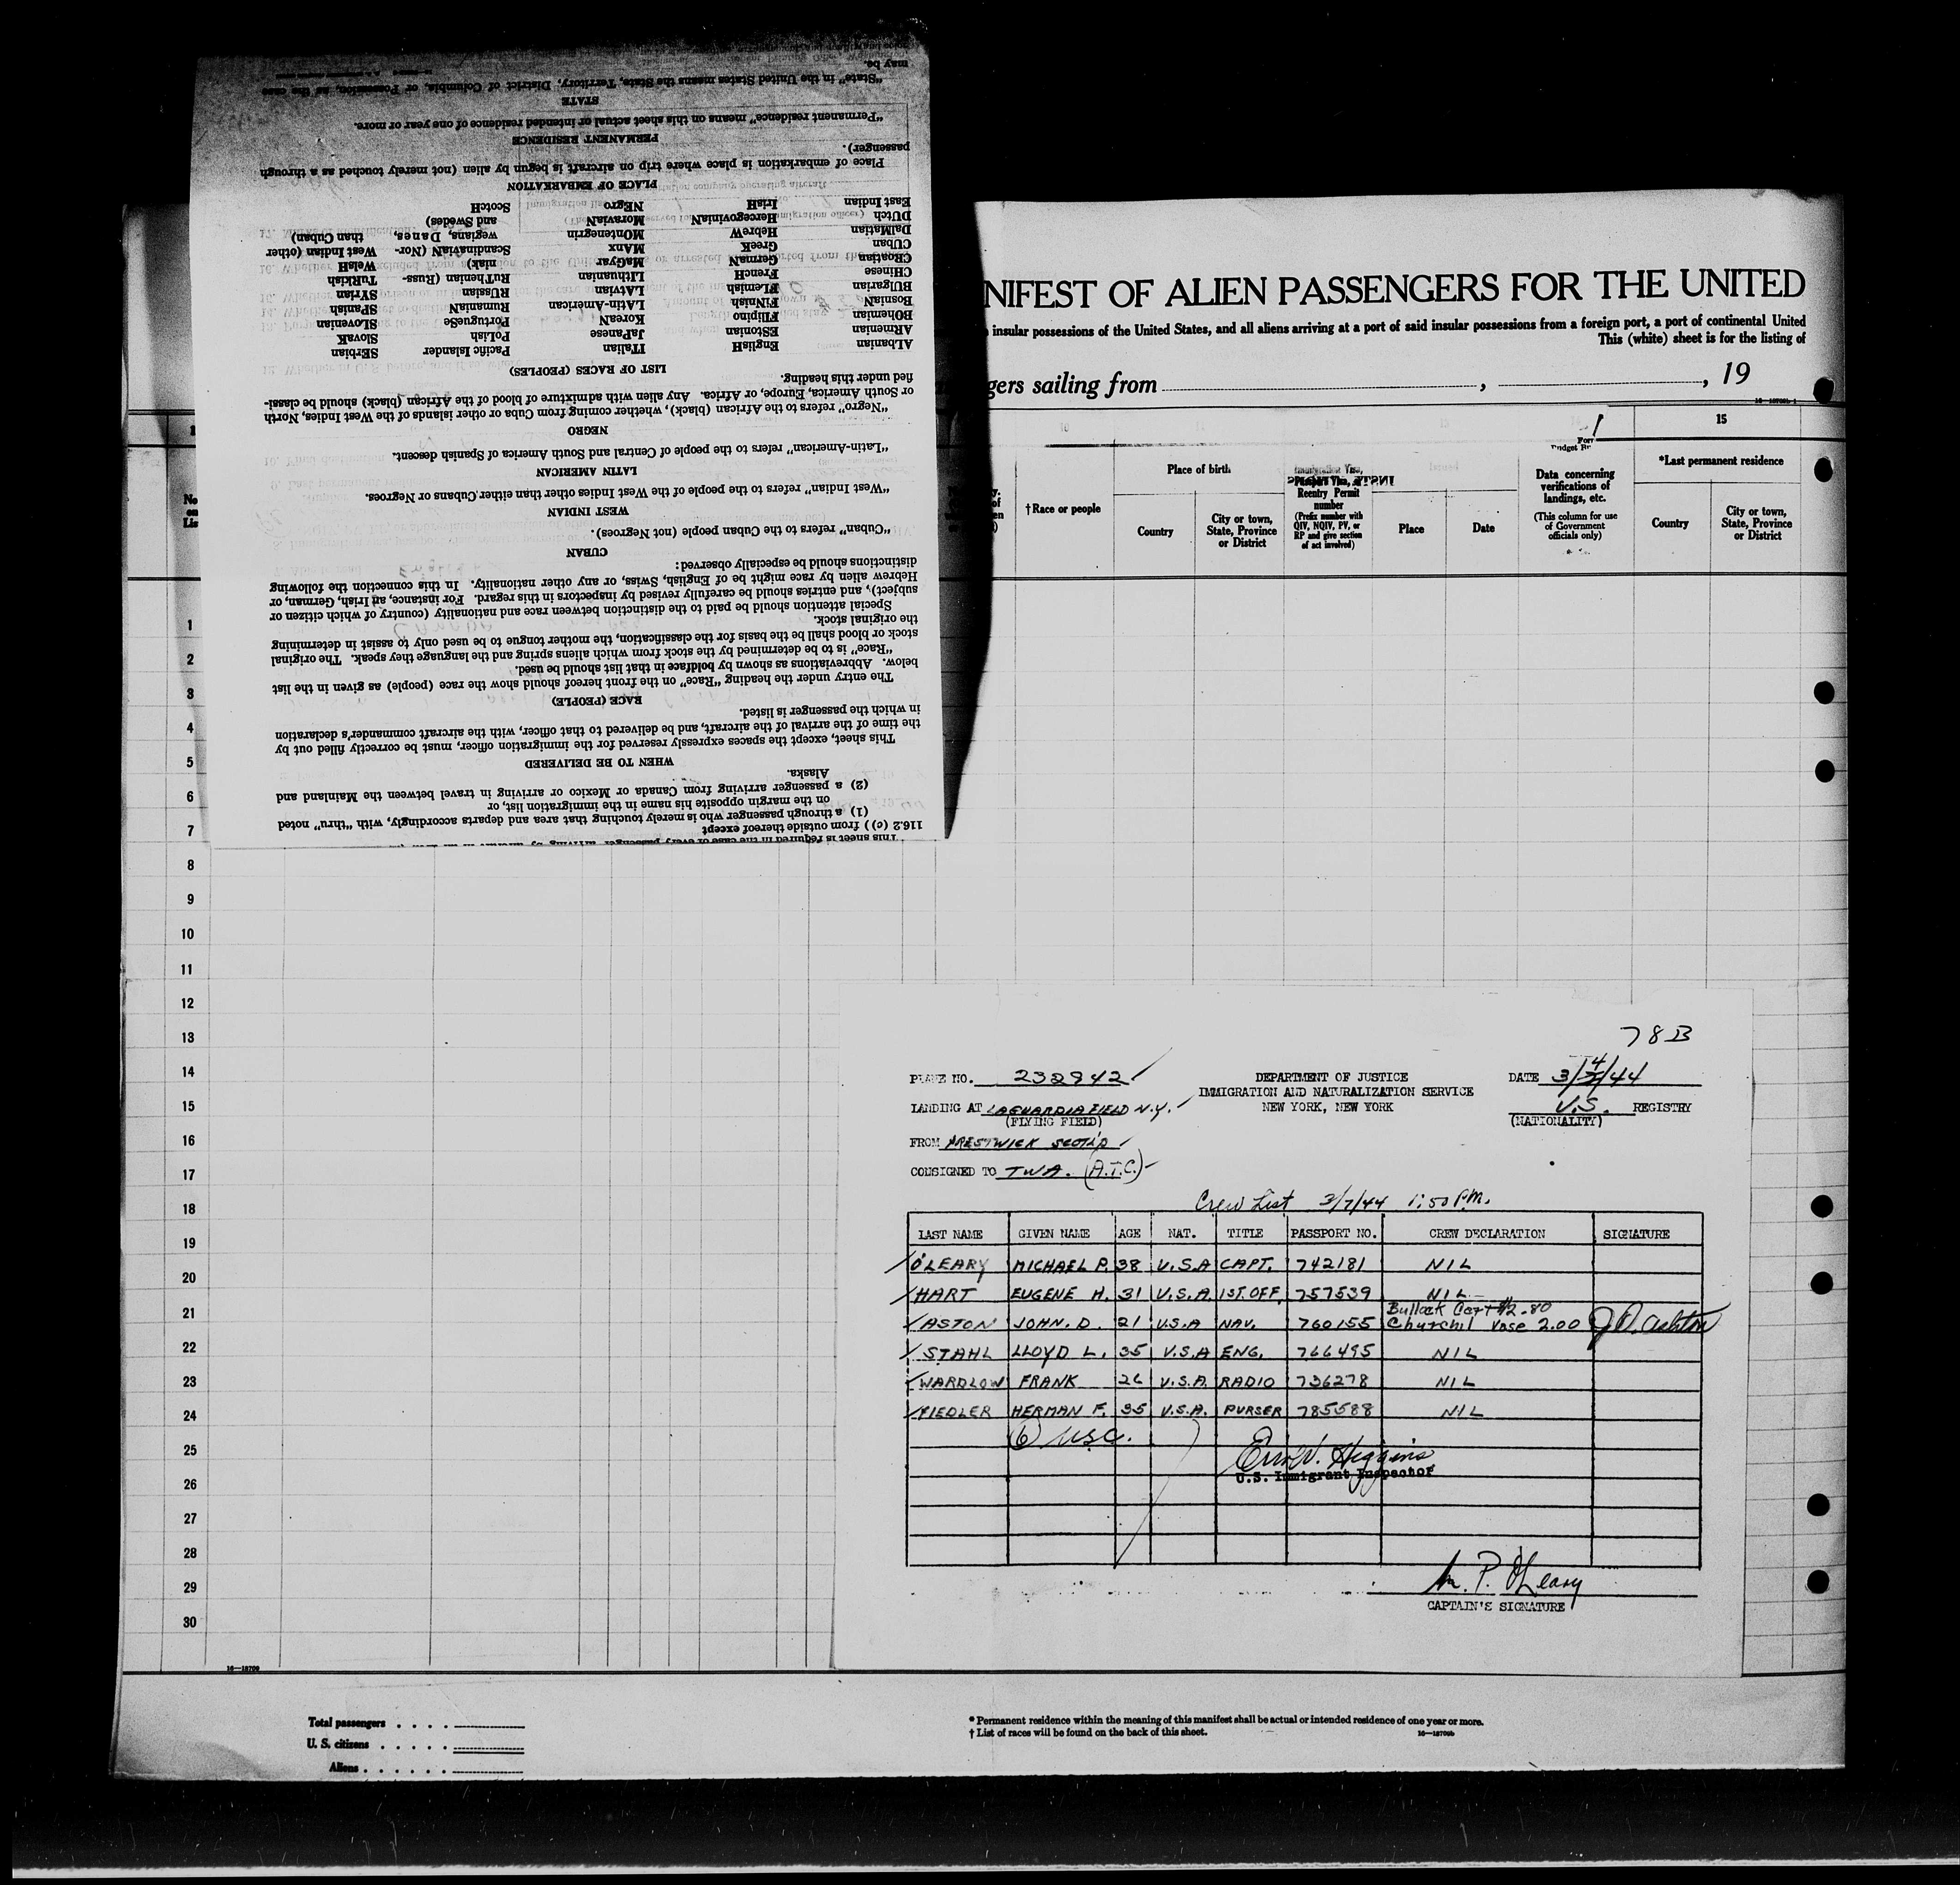 may be.
"State" in the United States means the State, Territory, District of Columbia, or Possession, as the case
STATE
"Permanent residence" means on this sheet actual or intended residence of one year or more.
PERMANENT RESIDENCE
passenger).
Place of embarkation is place where trip on aircraft is begun by alien (not merely touched as a through
PLACE OF EMBARKATION
East Indian IrisH NEgro ScotcH
DUtch HercegovinIaN MoraviaN and Swedes)
DalMatian HebreW MOntenegrin wegians, Danes, than Cuban)
CUban GreeK MAnx ScandinaviaN (Nor- West Indian (other
CRoatian GermaN MaGyar niak) WelsH
Chinese FrencH LIthuanian RuThenian (Russ- TuRkish
BUlgarian FLemish LAtvian RUssian SYrian
BosniaN FiNnish LAtin-American RumaniaN SPanish
BOhemian FIlipino KoreaN PortugueSe SLovenian
ARmenian EStonian JaPanese PoLish SlovaK
ALbanian EngliSH ITalian Pacific Islander SErbian
LIST OF RACES (PEOPLES)
fied under this heading.
or South America, Europe, or Africa. Any alien with admixture of blood of the African (black) should be classi-
"Negro" refers to the African (black), whether coming from Cuba or other islands of the West Indies, North
NEGRO
"Latin-American" refers to the people of Central and South America of Spanish descent.
LATIN AMERICAN
"West Indian" refers to the people of the West Indies other than either Cubans or Negroes.
WEST INDIAN
"Cuban" refers to the Cuban people (not Negroes).
CUBAN
distinctions should be especially observed:
Hebrew alien by race might be of English, Swiss, or any other nationality. In this connection the following
subject), and entries should be carefully revised by inspectors in this regard. For instance, an Irish, German, or
Special attention should be paid to the distinction between race and nationality (country of which citizen or
the original stock.
stock or blood shall be the basis for the classification, the mother tongue to be used only to assist in determining
"Race" is to be determined by the stock from which aliens spring and the language they speak. The original
below. Abbreviations as shown by boldface in that list should be used.
The entry under the heading "Race" on the front hereof should show the race (people) as given in the list
RACE (PEOPLE)
in which the passenger is listed.
the time of the arrival of the aircraft, and be delivered to that officer, with the aircraft commander's declaration
This sheet, except the spaces expressly reserved for the immigration officer, must be correctly filled out by
WHEN TO BE DELIVERED
Alaska.
(2) a passenger arriving from Canada or Mexico or arriving in travel between the Mainland and
on the margin opposite his name in the immigration list, or
(1) a through passenger who is merely touching that area and departs accordingly, with "thru" noted
116.2 (c)) from outside thereof except
This sheet is required in the case of every passenger arriving by aircraft in
NIFEST OF ALIEN PASSENGERS FOR THE UNITED
insular possessions of the United States, and all aliens arriving at a port of said insular possessions from a foreign port, a port of continental United
This (white) sheet is for the listing of
gers sailing from , , 19
15
†Race or people
Place of birth
Country
City or town, State, Province or District
Reentry Permit number
(Prefix number with QIV, NQIV, PV, or RP and give section of act involved)
Place
Date
Data concerning verifications of landings, etc.
(This column for use of Government officials only)
*Last permanent residence
Country
City or town, State, Province or District
No
on
Lis
1
2
3
4
5
6
7
8
9
10
11
12
13
14
15
16
17
18
19
20
21
22
23
24
25
26
27
28
29
30
78B
PLANE NO. 232942
DEPARTMENT OF JUSTICE
IMMIGRATION AND NATURALIZATION SERVICE
NEW YORK, NEW YORK
DATE 3/4/44
U.S. REGISTRY
(NATIONALITY)
LANDING AT LAGUARDIA FIELD N.Y.
(FLYING FIELD)
FROM PRESTWICK SCOT'D
CONSIGNED TO TWA. (A.T.C.)
Crew List 3/7/44 1:50 P.M.
LAST NAME GIVEN NAME AGE NAT. TITLE PASSPORT NO. CREW DECLARATION SIGNATURE
O'LEARY MICHAEL P. 38 U.S.A CAPT. 742181 NIL
HART EUGENE H. 31 U.S.A. 1ST. OFF. 757539 NIL
Bullock Cart $2.80
ASTON JOHN. D. 21 U.S.A NAV. 760155 Churchil Vase 2.00 J D. Ashton
STAHL LLOYD L. 35 U.S.A ENG. 766495 NIL
WARDLOW FRANK 26 U.S.A. RADIO 736278 NIL
FIEDLER HERMAN F. 35 U.S.A. PURSER 785588 NIL
(6) USC.
Higgins
U.S. Immigrant Inspector
M. P. O'Leary
CAPTAIN'S SIGNATURE
16—18709
Total passengers . . . .
U. S. citizens . . . . .
Aliens . . . . . .
* Permanent residence within the meaning of this manifest shall be actual or intended residence of one year or more.
† List of races will be found on the back of this sheet.